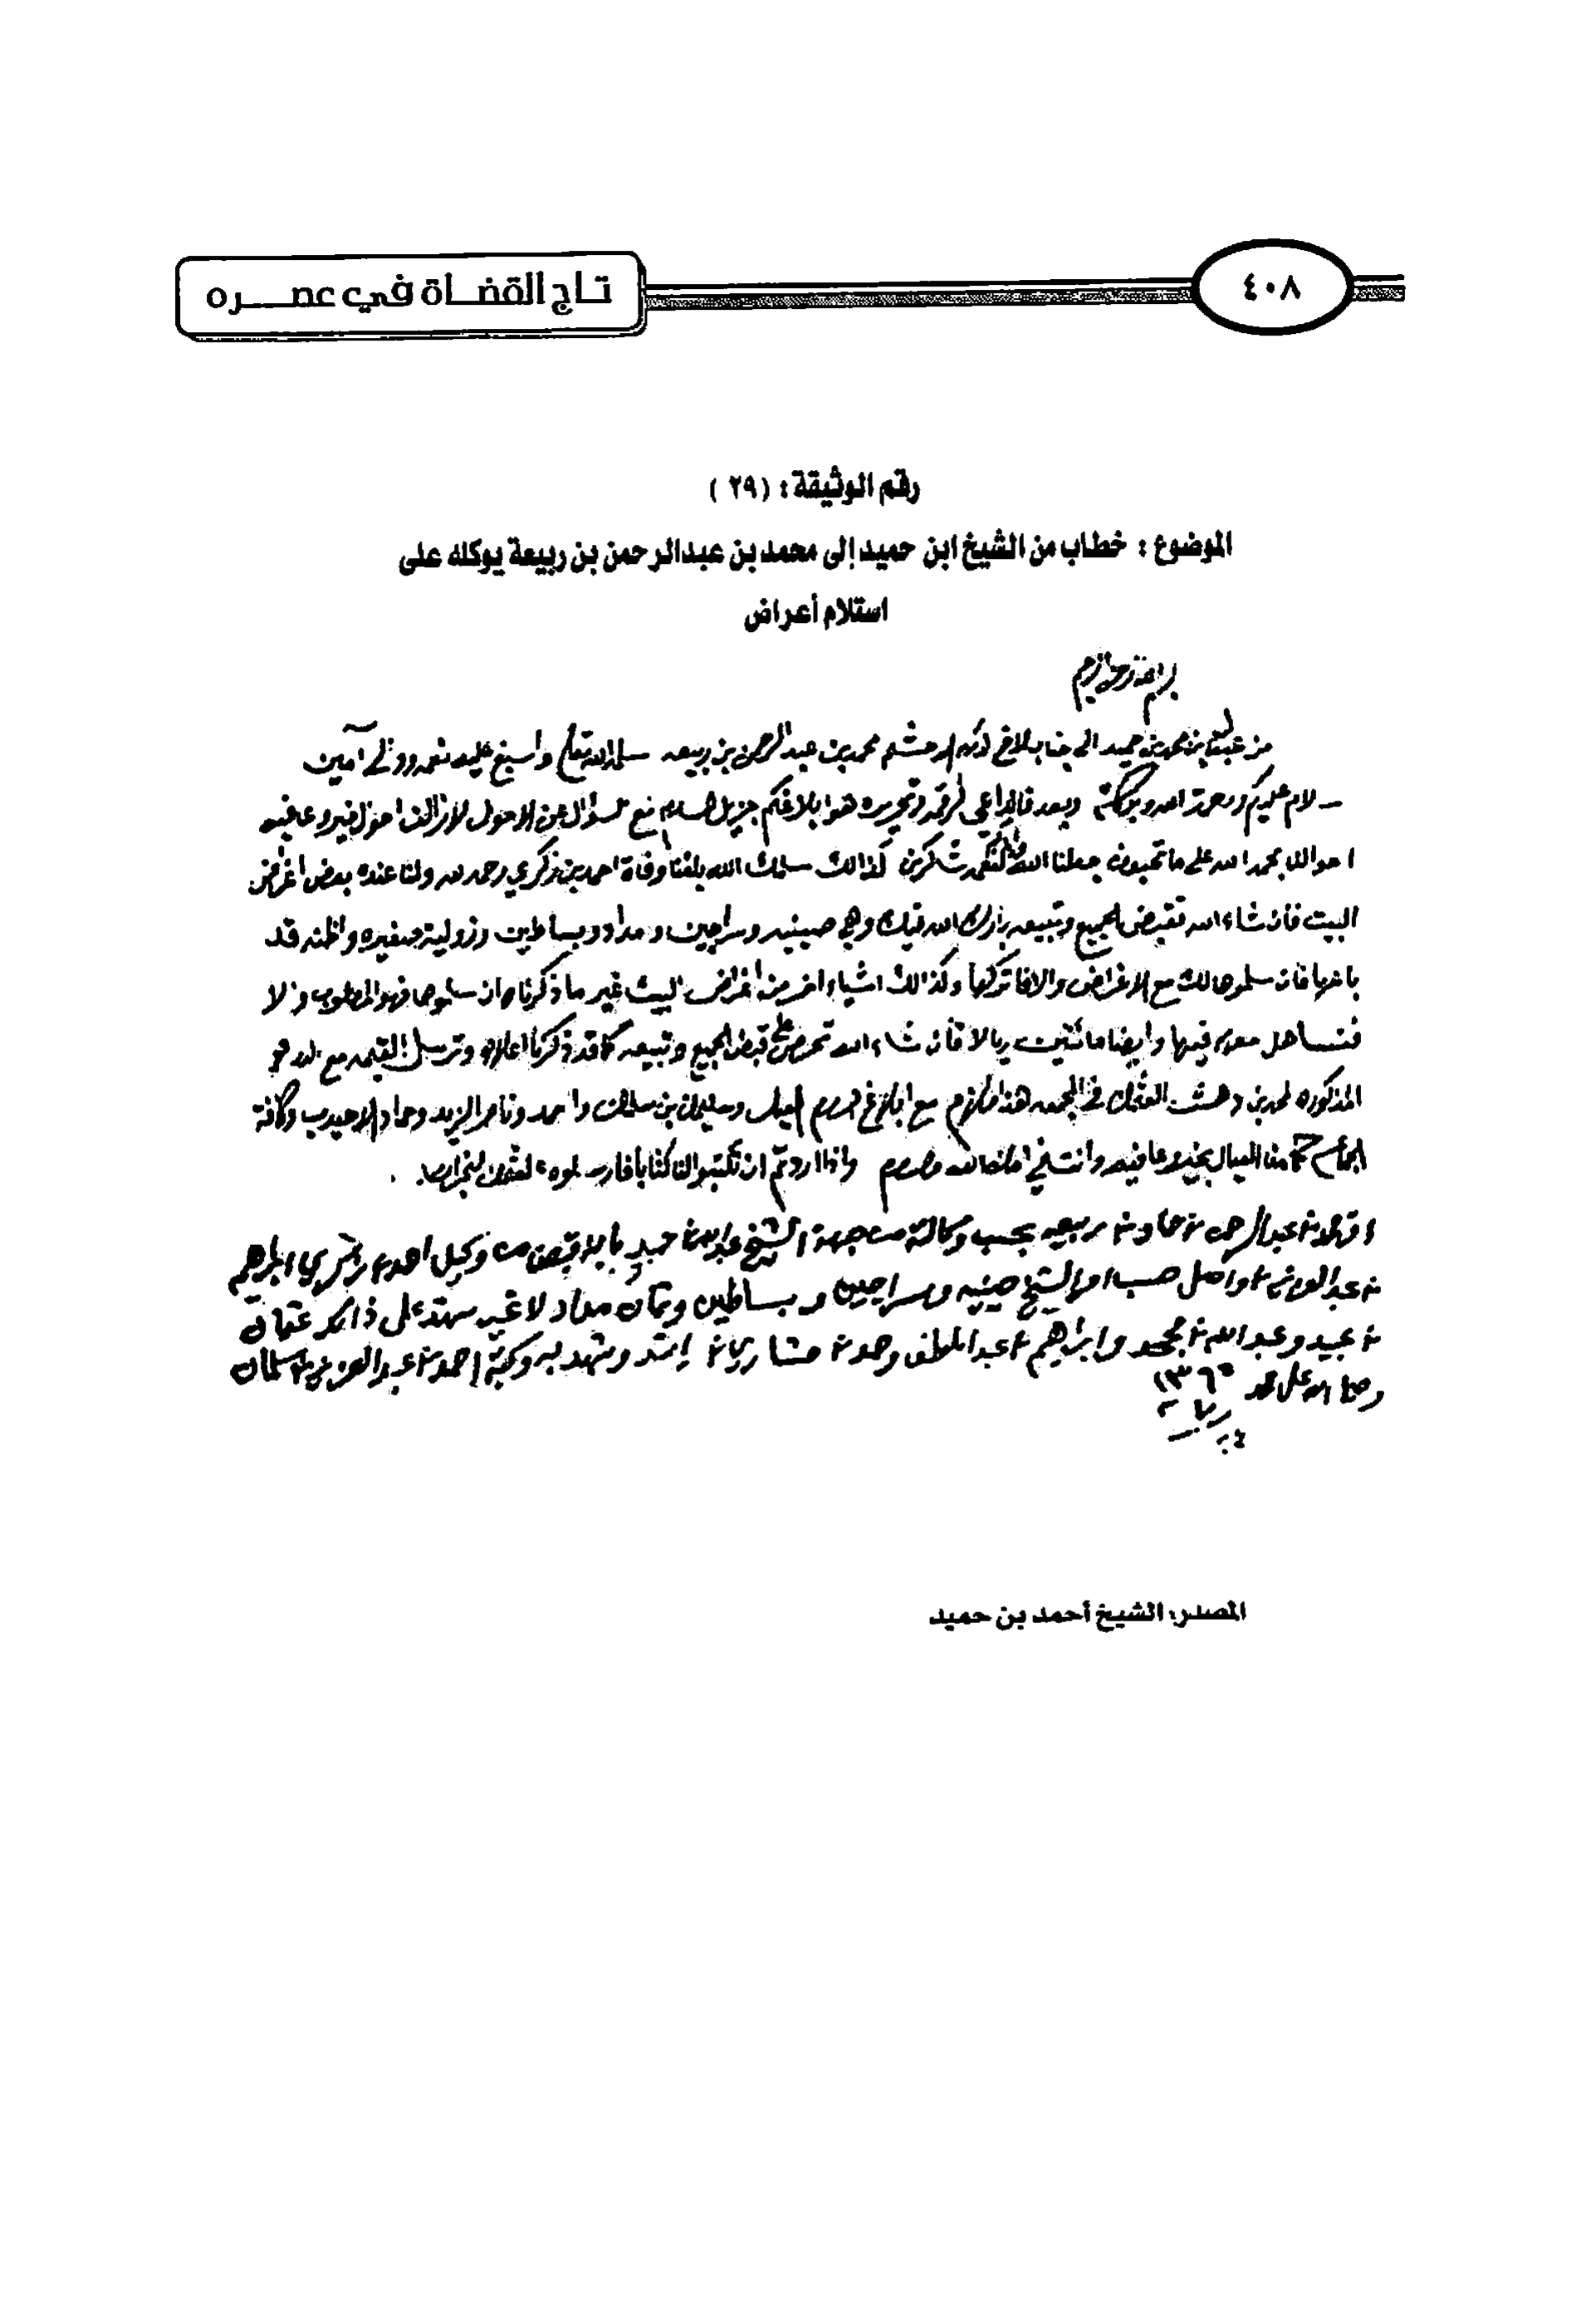 ٤٠٨
تاج القضاة في عصره
رقم الوثيقة : (٢٩)
الموضوع : خطاب من الشيخ ابن حميد إلى محمد بن عبدالرحمن بن ربيعة يوكله على
استلام أعراض
بسم الله الرحمن الرحيم
من عبدالله بن محمد بن حميد الى جناب الاخ المكرم الاحشم محمد بن عبد الرحمن بن ربيعه سلمه الله تعالى واسبغ عليه نعمه ووالى آمين
سلام عليكم ورحمة الله وبركاته وبعد فالداعي لرقمه وتحريره هو ابلاغكم جزيل السلام مع السؤال عن الاحوال لازالت احوال خير وعافيه
احوالنا بحمد الله على ما تحبون جعلنا الله واياكم لنعمه شاكرين كذالك سلمك الله بلغنا وفاة احمد بن زكري رحمه الله ولنا عنده بعض اغراض
البيت فان شاء الله تقبض الجميع وتبيعه بارك الله فيك وهي صينيه وسراجين ومداد وبساطين وزولية صغيره واظنه قد
باعها فان سلموها لك مع الاغراض والا فاتركها وكذالك اشياء اخر من اغراض البيت غير ما ذكرنا وان سلموها فهو المطلوب والا
فتساهل معهم فيها وايضا مائتين ريالا فان شاء الله تحرص على قبض الجميع وتبيعه كما قد ذكرنا اعلاه وترسل القيمه مع
المذكوره لمحمد بن دهش في المجمعه هذا مالزم مع ابلاغ السلام العيال وسليمان بن سلمان واحمد وناصر الزيد وحماد الاحيدب وكافة
الجماعه كما منا العيال بخير وعافيه وانت في امان الله والسلام واذا اردتم ان تكتبوا لنا كتابا فارسلوه
اقر محمد بن عبدالرحمن بن حماد بن ربيعه بحسب وكالة من جهة الشيخ عبدالله بن حميد بانه قبض من وكيل احمد بن زكري ابراهيم
بن عبدالعزيز حسب امر الشيخ صينيه وسراجين وبساطين وثمان مداد لا غير شهد على ذالك عثمان
بن عبيد وعبدالله بن محمد وابراهيم بن عبداللطيف وحمد بن مشاري وشهد به وكتبه احمد بن عبدالعزيز بن سلمان
وصلى الله على محمد ١٣٦٥
المصدر: الشيخ أحمد بن حميد